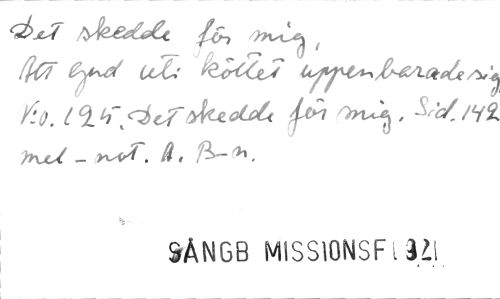 Det skedde för mig,
Att Gud uti köttet uppenbarade sig
V:o. 125. Det skedde för mig. Sid. 142
mel-not. A. B-n.
SÅNGB MISSIONSF 1921